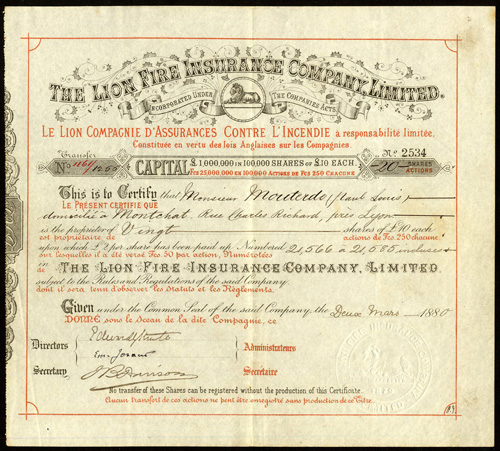 THE LION FIRE INSURANCE COMPANY, LIMITED.
INCORPORATED UNDER THE COMPANIES ACTS
LE LION COMPAGNIE D'ASSURANCES CONTRE L'INCENDIE à responsabilité limitée,
Constituée en vertu des lois Anglaises sur les Compagnies.
Transfer
No 1255
CAPITAL £1,000,000 IN 100,000 SHARES OF £10 EACH.
FCS 25,000,000 EN 100,000 ACTIONS DE FCS 250 CHACUNE
No 2534
20 SHARES
ACTIONS
This is to Certify that Monsieur Mouterde (Paul Louis)
LE PRÉSENT CERTIFIE que
domicilié à Montchat, Rue Charles Richard, près Lyon
is the proprietor of Vingt shares of £10 each
est propriétaire de actions de Fcs 250 chacune
upon which £2 per share has been paid up Numbered 21,566 à 21,585 inclus
sur lesquelles il a été versé Fcs 50 par action, Numérotées
in THE LION FIRE INSURANCE COMPANY, LIMITED
de
subject to the Rules and Regulations of the said Company
dont il sera tenu d'observer les Statuts et les Règlements.
Given under the Common Seal of the said Company, the Deux Mars 1880
DONNÉ sous le Sceau de la dite Compagnie, ce
Directors
Administrateurs
Secretary
Secrétaire
No transfer of these Shares can be registered without the production of this Certificate.
Aucun transfert de ces actions ne peut être enregistré sans production de ce Titre.